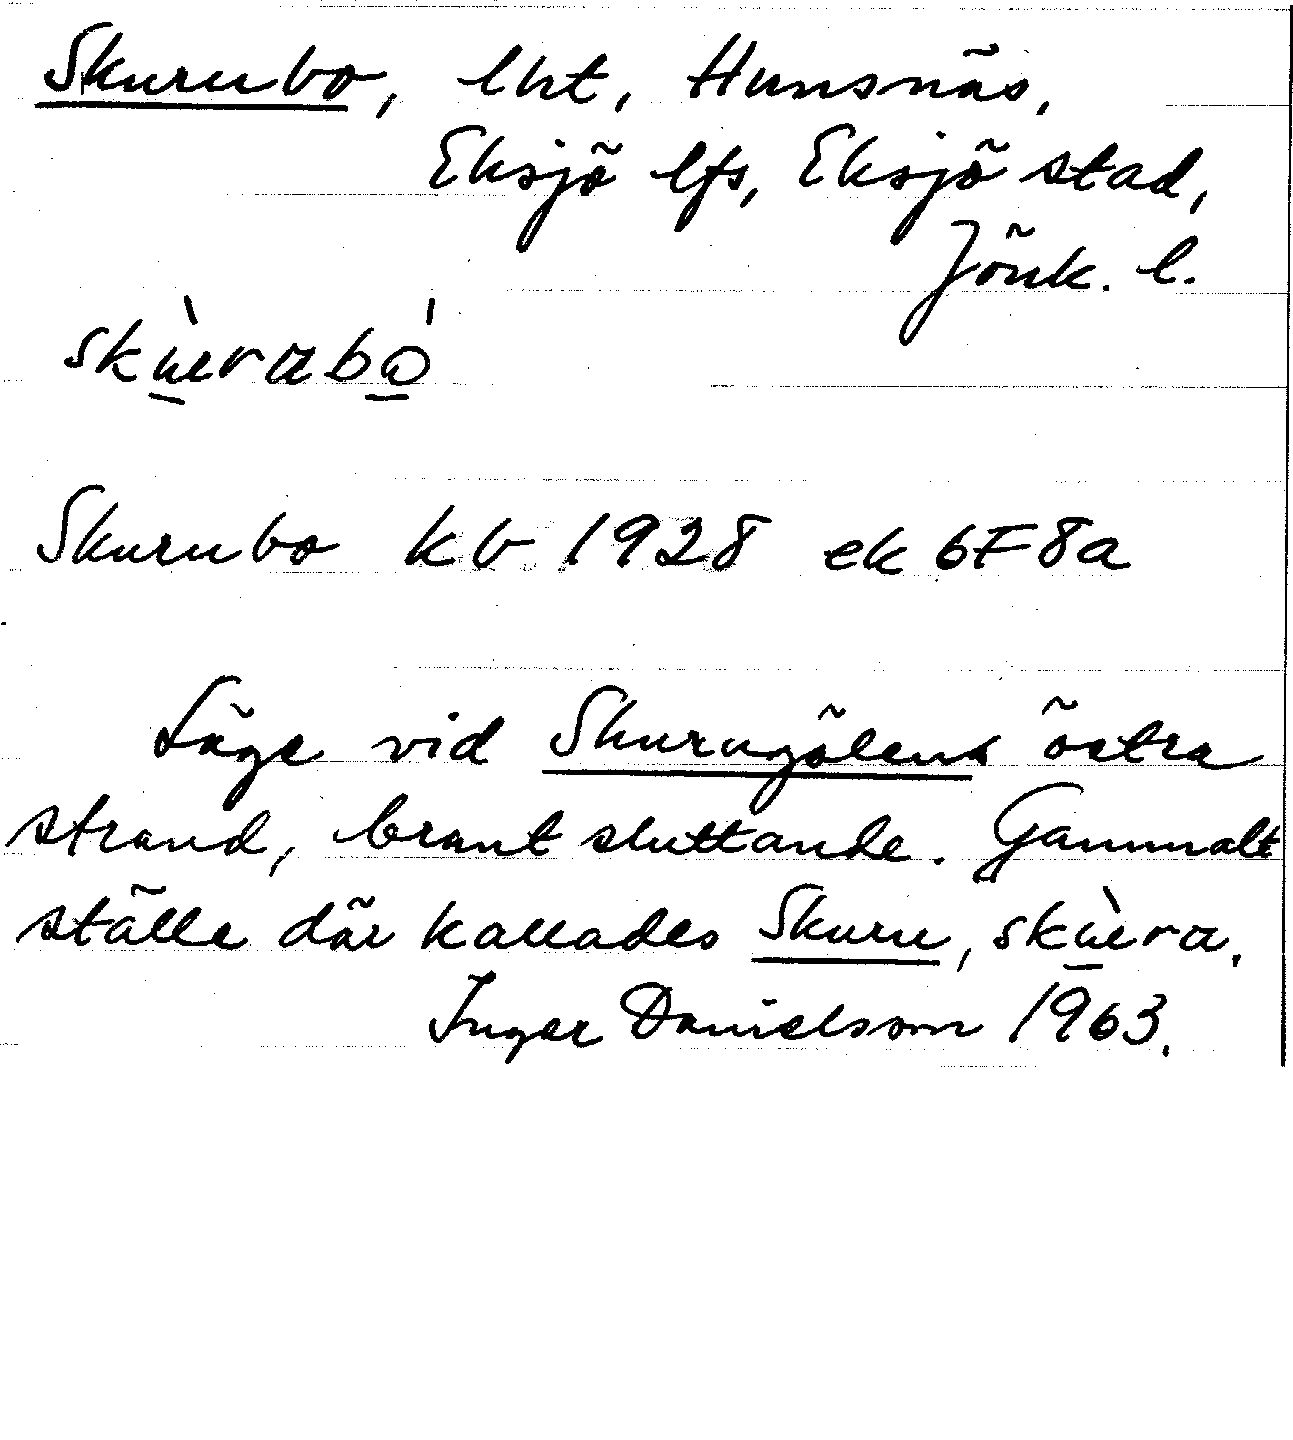 Skurubo, lht, Hunsnäs,
Eksjö lfs, Eksjö stad,
Jönk. l.
skùrabó
Skurubo kb 1928 ek 6F8a
Läge vid Skurugölens östra
strand, brant sluttande. Gammalt
ställe där kallades Skuru, skùra.
Inger Danielsson 1963.